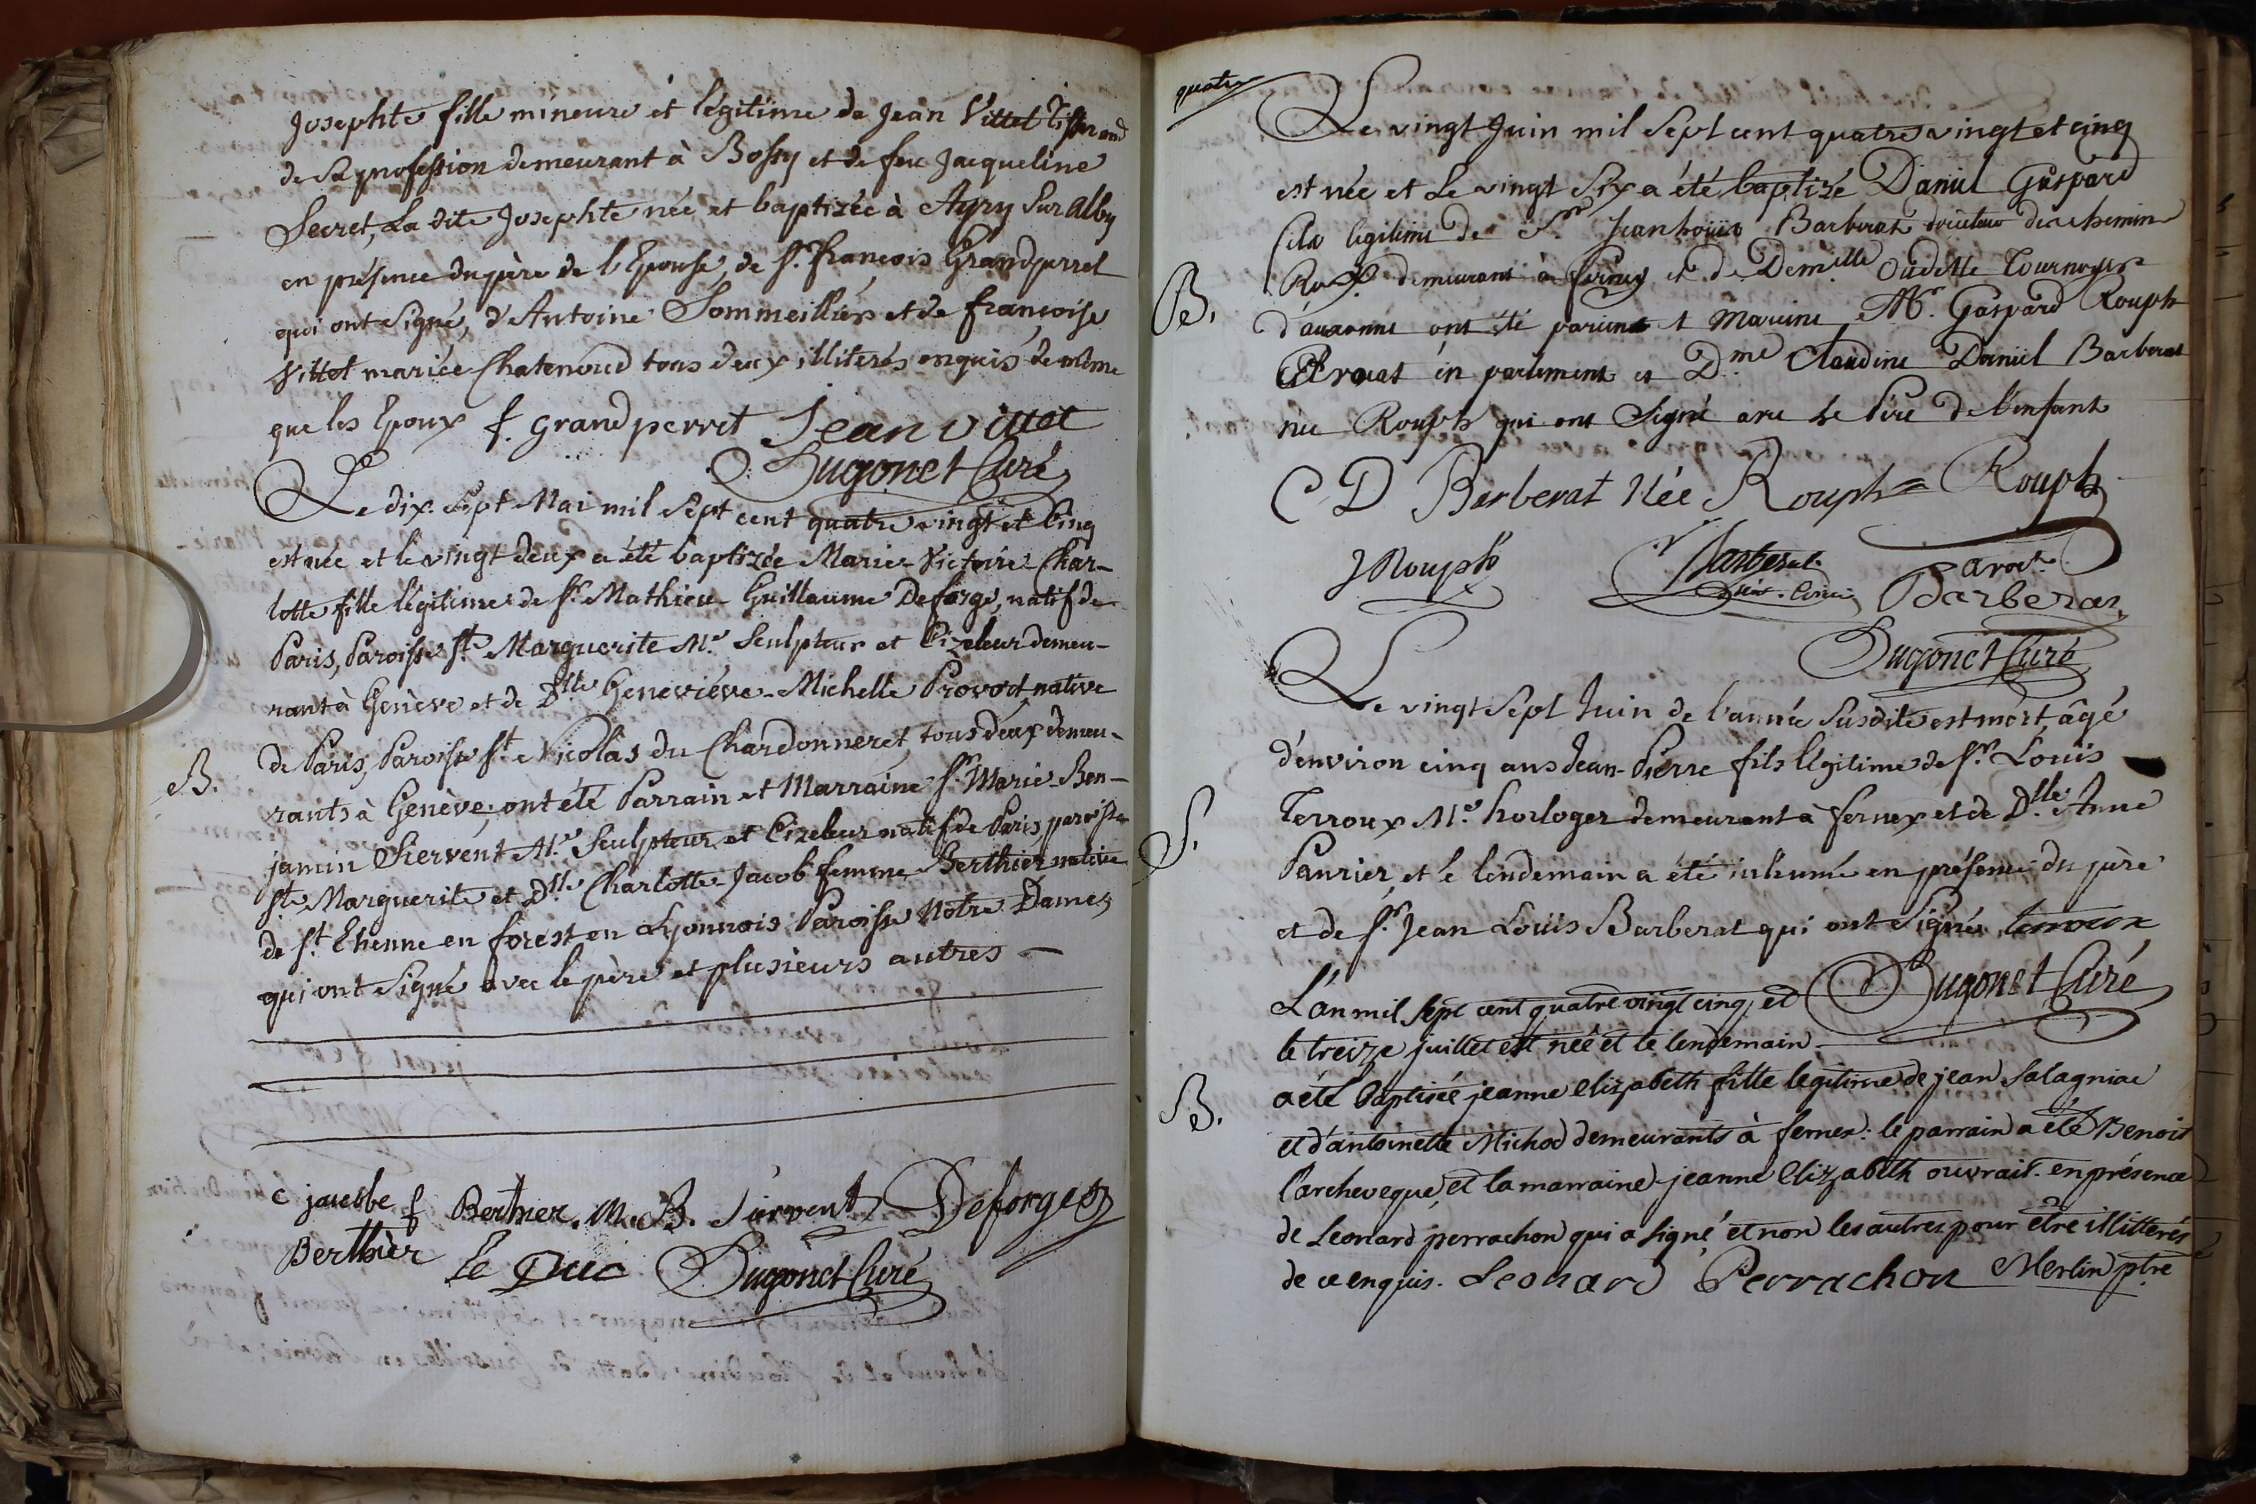 Josephte fille mineure et légitime de Jean Vittet Tisserand
de Sa profession demeurant à Bossy et de feu Jacqueline
Secret, La dite Josephte née et baptizée à Ayry Sur Alby
en présence du père de l'Epouse, de Sr. François Grandperret
qui ont Signé, d'Antoine Sommeillier et de françoise
Vittet mariée Chatenoud tous deux illiterés enquis de même
que les Epoux f. grandperret Jean vittet
Dugonet Curé
Le dix Sept Mai mil Sept cent quatre vingt et Cinq
est née et le vingt deux a été baptizée Marie Victoire Char-
lotte fille légitime de Sr. Mathieu Guillaume Deforge, natif de
Paris, Paroisse Ste Marguerite Me. Sculpteur et Cizeleur demeu-
rant à Genève et de Dlle Geneviéve-Michelle Provost native
de Paris, Paroisse St. Nicolas du Chardonneret, tous deux demeu-
B.
rants à Genève; ont été Parrain et Marraine Sr. Marie-Ben-
jamin Siervent Me. Sculpteur et Cizeleur natif de Paris, paroisse
Ste Marguerite et Dlle. Charlotte Jacob femme Berthier native
de St. Etienne en forest en Lyonnois Paroisse Notre Dame
qui ont Signé avec le père et plusieurs autres —
c jacobe f Berthier. M. B. Siervent Deforges
Berthier le Duc Dugonet Curé
quatre
Le vingt Juin mil Sept cent quatre vingt et cinq
est née et Le vingt Six a été baptizé Daniel Gaspard
fils legitime de Sr Jean Louis Barberat des chemins
demeurant à ferney et de Demlle Oudette Tournoyer
B.
d'auxonne ont été parien et Mareine Mr. Gaspard Rouph
Avocat en parlement et Dme Claudine Daniel Barberat
née Rouph qui ont Signé avec le Père de l'enfant
C D Barberat Née Rouph Rouph
J Rouph Barberat avoct.
Barberat
Dugonet Curé
Le vingt Sept Juin de l'année Susdite est mort, âgé
d'environ cinq ans Jean-Pierre fils légitime de Sr. Louis
Terroux Me. horloger demeurant à fernex et de Dlle. Anne
S.
Panrier, et le lendemain a été inhumé en présence du père
et de Sr. Jean Louis Barberat qui ont Signé, terroux
L'an mil sept cent quatre vingt cinq, et Dugonet Curé
le treize juillet est née et le lendemain
B.
a été baptisée jeanne elizabeth fille legitime de jean Salagniac
et d'antoinette Michod demeurants à fernex: le parrain a été Benoit
l'archeveque, et la marraine jeanne elizabeth ouvrait. en présence
de Leonard perrachon qui a signé et non les autres pour être illitterés
de ce enquis. Leonard Perrachon Merlin ptre